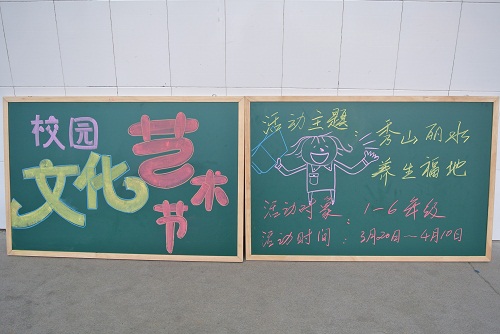 校园
文化艺术节
活动主题：秀山丽水
养生福地
活动对象：1-6年级
活动时间：3月20日～4月10日